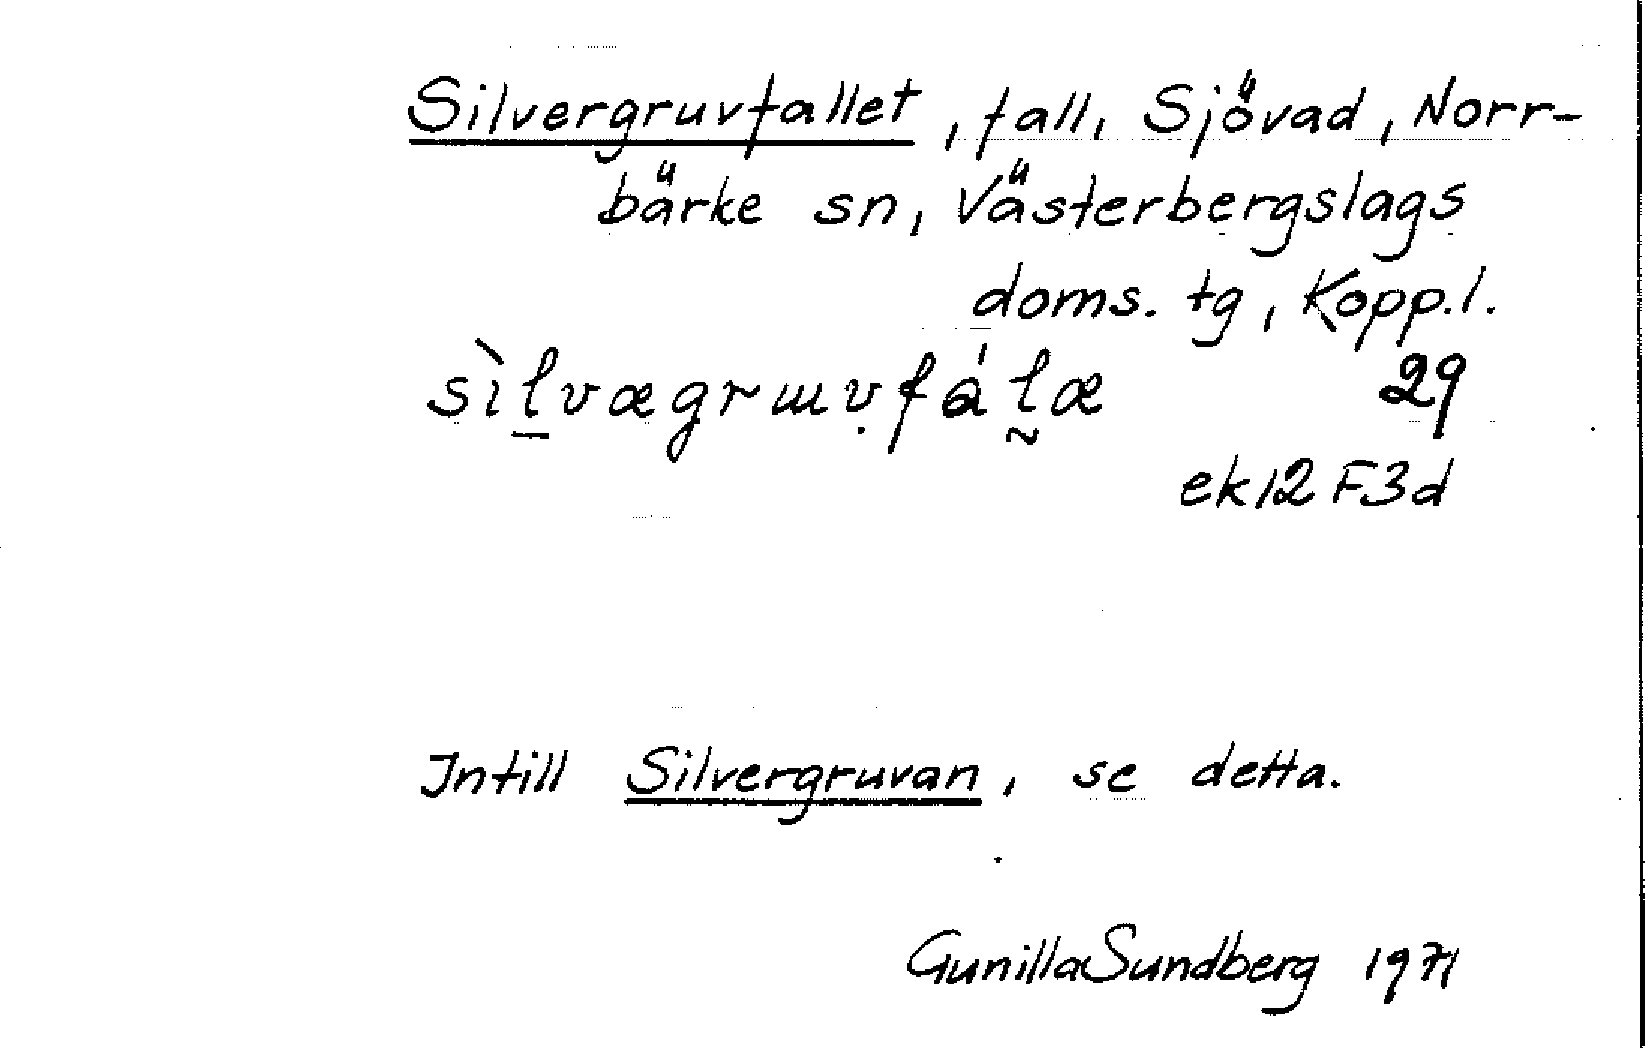 Silvergruvfallet, fall, Sjövad, Norr-
bärke sn, Västerbergslags
doms. tg, Kopp.l.
sìl̠vægrɯṿfál̰æ 29
ek 12 F3d
Intill Silvergruvan, se detta.
Gunilla Sundberg 1971